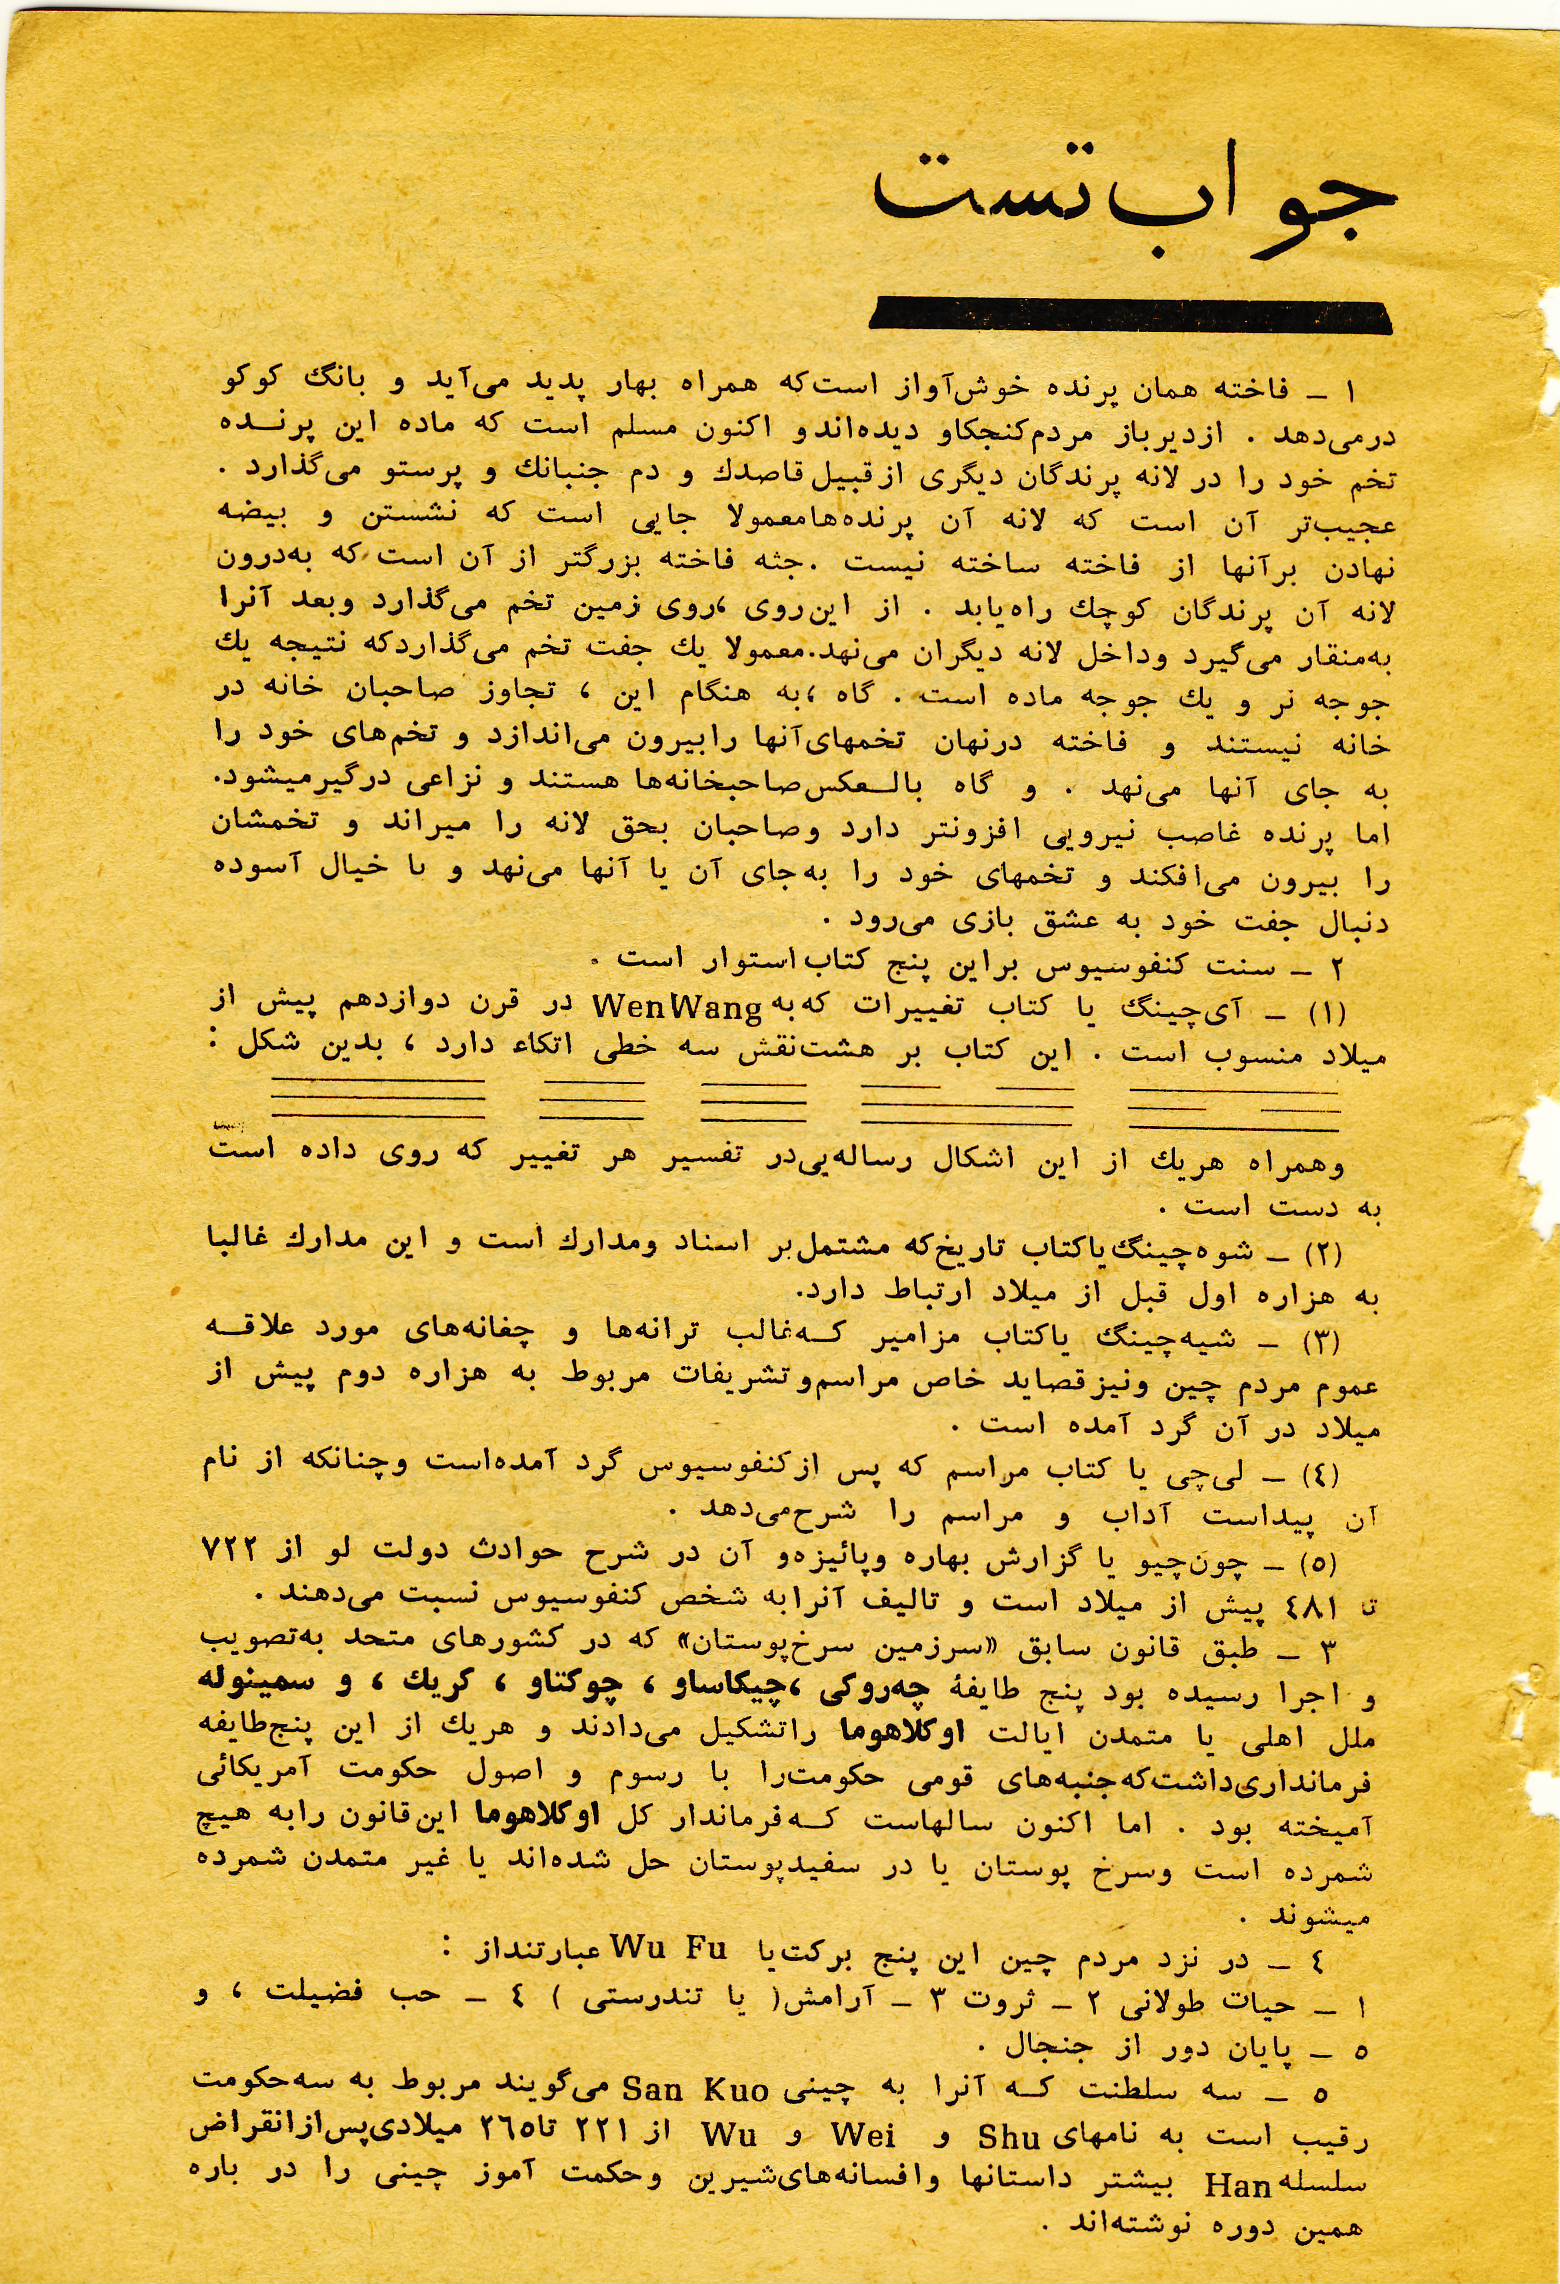 جواب تست
۱ ـ فاخته همان پرنده خوش‌آواز است که همراه بهار پدید می‌آید و بانگ کوکو
درمی‌دهد . ازدیرباز مردم کنجکاو دیده‌اند و اکنون مسلم است که ماده این پرنـــده
تخم خود را در لانه پرندگان دیگری از قبیل قاصدك و دم جنبانك و پرستو می‌گذارد .
عجیب‌تر آن است که لانه آن پرنده‌ها معمولا جایی است که نشستن و بیضه
نهادن برآنها از فاخته ساخته نیست . جثه فاخته بزرگتر از آن است که به‌درون
لانه آن پرندگان کوچك راه‌یابد . از این‌روی ، روی زمین تخم می‌گذارد وبعد آنرا
به‌منقار می‌گیرد وداخل لانه دیگران می‌نهد. معمولا یك جفت تخم می‌گذارد که نتیجه یك
جوجه نر و یك جوجه ماده است . گاه ، به هنگام این ، تجاوز صاحبان خانه در
خانه نیستند و فاخته درنهان تخمهای آنها را بیرون می‌اندازد و تخم‌های خود را
به جای آنها می‌نهد . و گاه بالــعکس صاحبخانه‌ها هستند و نزاعی درگیر میشود.
اما پرنده غاصب نیرویی افزونتر دارد وصاحبان بحق لانه را میراند و تخمشان
را بیرون می‌افکند و تخمهای خود را به جای آن یا آنها می‌نهد و با خیال آسوده
دنبال جفت خود به عشق بازی می‌رود .
۲ ـ سنت کنفوسیوس براین پنج کتاب استوار است .
(۱) ـ آی‌چینگ یا کتاب تغییرات که به Wen Wang در قرن دوازدهم پیش از
میلاد منسوب است . این کتاب بر هشت نقش سه خطی اتکاء دارد ، بدین شکل :
وهمراه هریك از این اشکال رساله‌یی در تفسیر هر تغییر که روی داده است
به دست است .
(۲) ـ شوه‌چینگ یا کتاب تاریخ که مشتمل بر اسناد ومدارك است و این مدارك غالبا
به هزاره اول قبل از میلاد ارتباط دارد.
(۳) ـ شیه‌چینگ یا کتاب مزامیر کــه غالب ترانه‌ها و چغانه‌های مورد علاقــه
عموم مردم چین ونیز قصاید خاص مراسم و تشریفات مربوط به هزاره دوم پیش از
میلاد در آن گرد آمده است .
(٤) ـ لی‌چی یا کتاب مراسم که پس از کنفوسیوس گرد آمده‌است وچنانکه از نام
آن پیداست آداب و مراسم را شرح می‌دهد .
(٥) ـ چون‌چیو یا گزارش بهاره وپائیزه‌و آن در شرح حوادث دولت لو از ۷۲۲
تا ٤۸۱ پیش از میلاد است و تالیف آنرا به شخص کنفوسیوس نسبت می‌دهند .
۳ ـ طبق قانون سابق «سرزمین سرخ‌پوستان» که در کشورهای متحد به‌تصویب
و اجرا رسیده بود پنج طایفهٔ چه‌روکی ، چیکاساو ، چوکتاو ، کریك ، و سمینوله
ملل اهلی یا متمدن ایالت اوکلاهوما را تشکیل می‌دادند و هریك از این پنج‌طایفه
فرمانداری داشت که جنبه‌های قومی حکومت‌را با رسوم و اصول حکومت آمریکائی
آمیخته بود . اما اکنون سالهاست کــه فرماندار کل اوکلاهوما این قانون را به هیچ
شمرده است وسرخ پوستان یا در سفیدپوستان حل شده‌اند یا غیر متمدن شمرده
میشوند .
٤ ـ در نزد مردم چین این پنج برکت‌یا Wu Fu عبارتنداز :
۱ ـ حیات طولانی ۲ ـ ثروت ۳ ـ آرامش( یا تندرستی ) ٤ ـ حب فضیلت ، و
٥ ـ پایان دور از جنجال .
٥ ـ سه سلطنت کــه آنرا به چینی San Kuo می‌گویند مربوط به سه حکومت
رقیب است به نامهای Shu و Wei و Wu از ۲۲۱ تا ۲٦٥ میلادی پس از انقراض
سلسله Han بیشتر داستانها وافسانه‌های شیرین وحکمت آموز چینی را در باره
همین دوره نوشته‌اند .